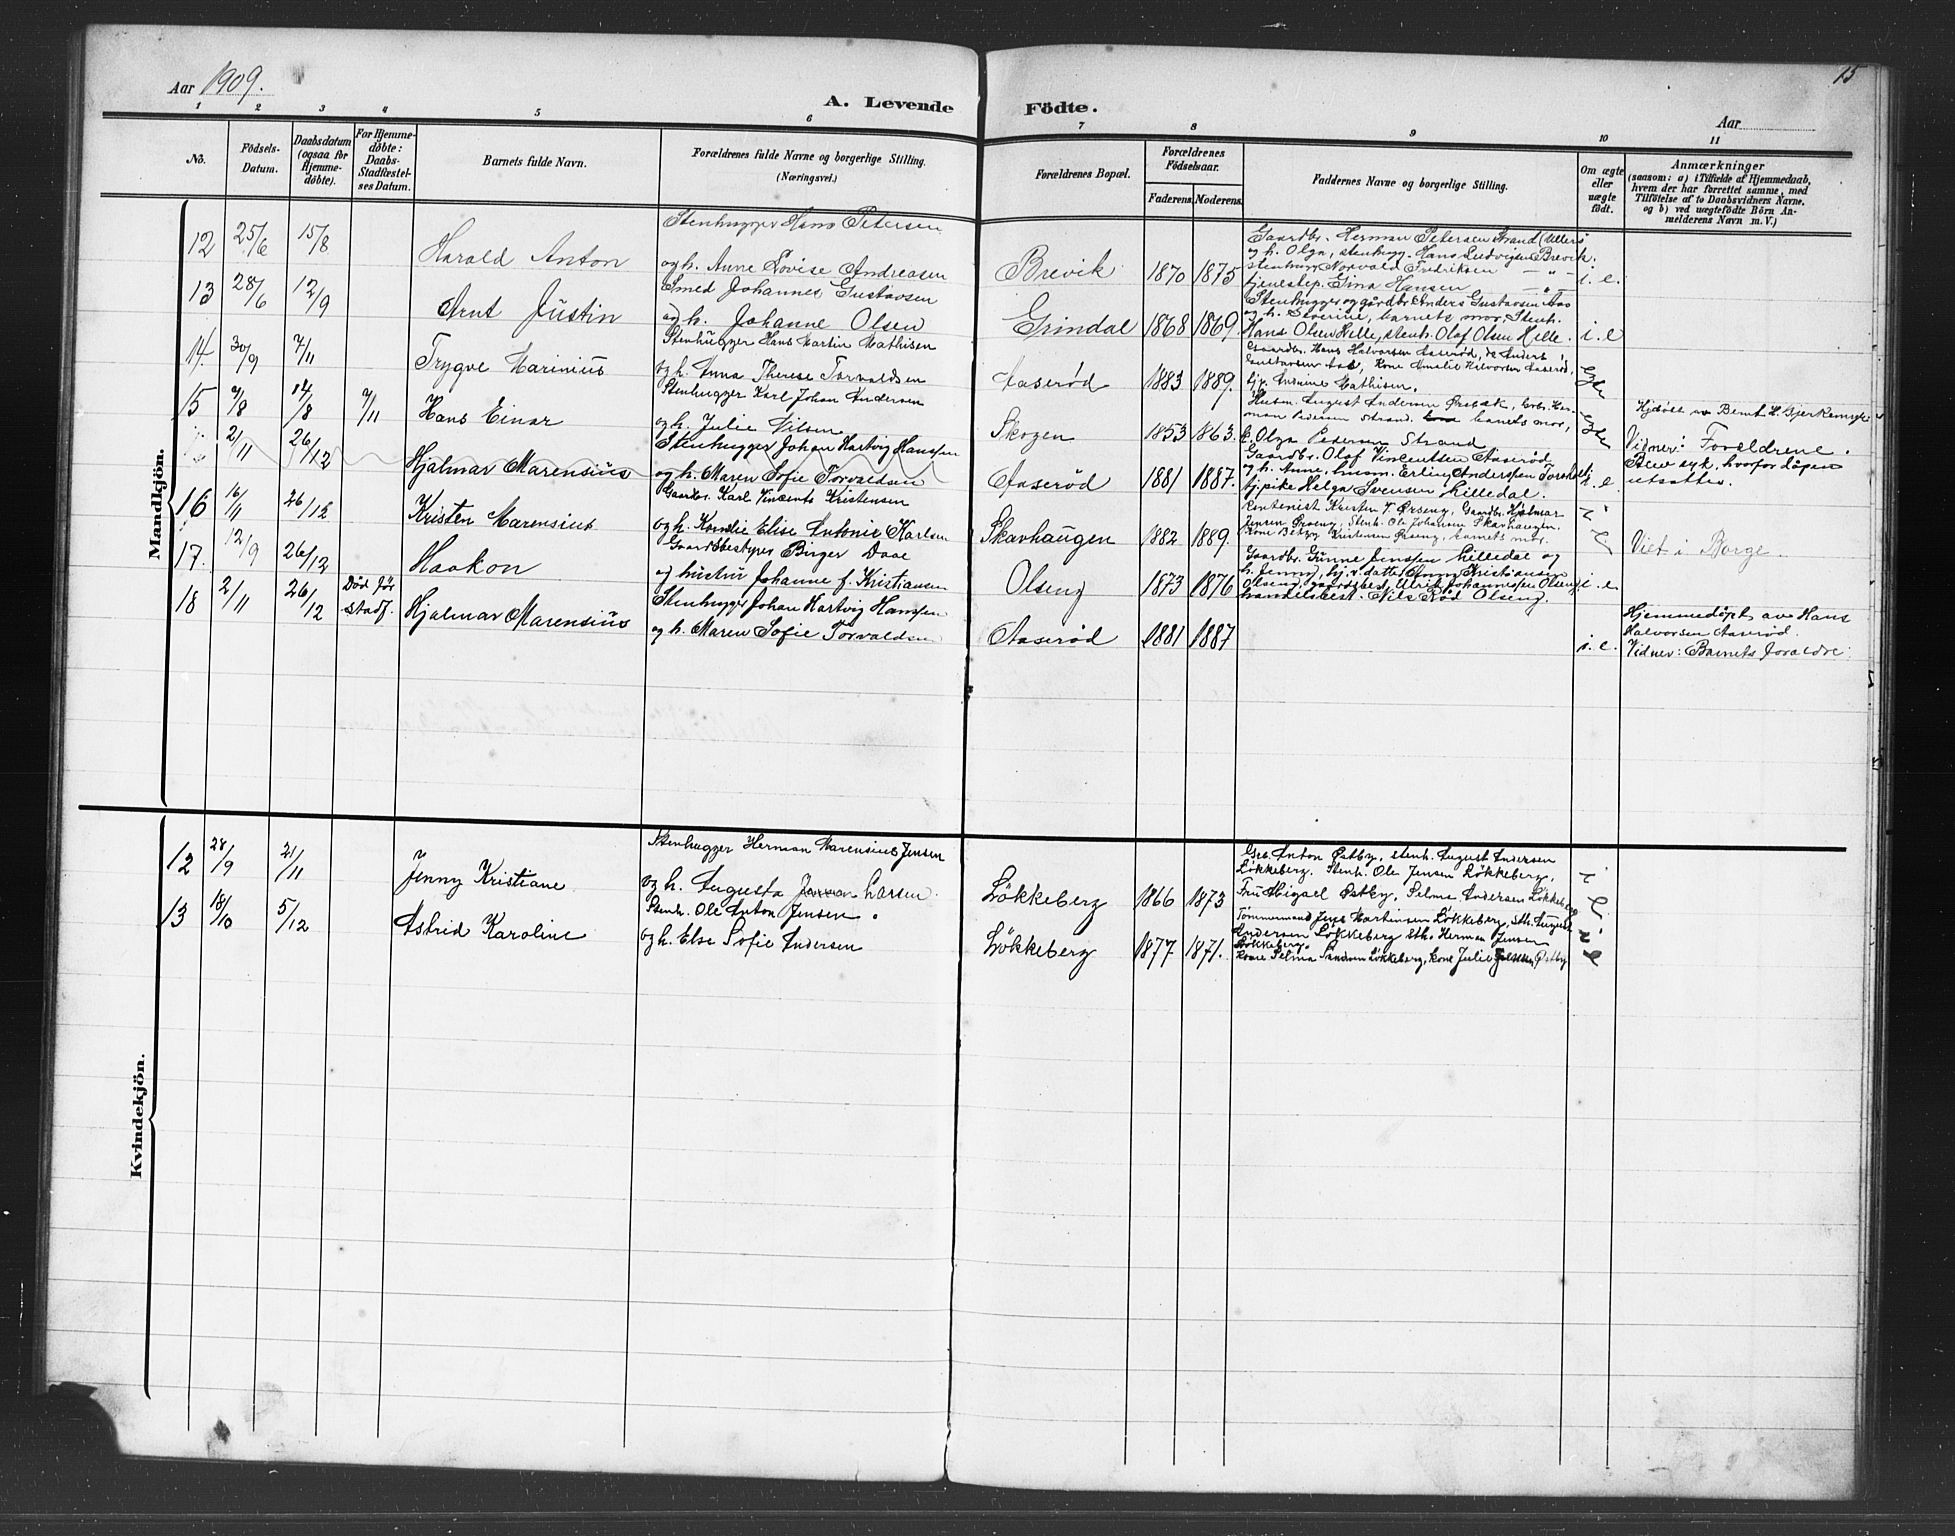 Aar 1909.
15
A. Levende Födte.
Aar
1 2 3 4 5 6 7 8 9 10 11
No.
Födsels-Datum.
Daabsdatum (ogsaa for Hjemme-döbte).
For Hjemme-döbte: Daabs-Stadfæstel-ses Datum.
Barnets fulde Navn.
Forældrenes fulde Navne og borgerlige Stilling.
(Næringsvei.)
Forældrenes Bopæl.
Forældrenes Födselsaar.
Faderens. Moderens.
Faddernes Navne og borgerlige Stilling.
Om ægte eller uægte födt.
Anmærkninger
(saasom: a) i Tilfælde af Hjemmedaab,
hvem der har forrettet samme, med
Tilföielse af to Daabsvidners Navne.
og b) ved uægtefödte Börn An-
melderens Navn m. V.)
Mandkjön.
12 25/6 15/8 Harald Anton
Stenhugger Hans Petersen
og h. Anne Lovise Andreasen
Brevik 1870 1875
Gaardbr. Herman Petersen Strand
og h. Olga, stenhugg. Hans Ludvigsen Brevik.
stenhugg. Norvald Fredriksen — " —
tjenestep. Gina Hansen — " —
i. e.
13 28/6 12/9 Arnt Justin
Smed Johannes Gustavsen
og h. Johanne Olsen
Grindal 1868 1869.
Stenhugger og gårdbr. Anders Gustavsen Aas
og h. Severine, barnets mor, Stenh.
Hans Olsen Hille, stenh. Olaf Olsen Hille.
i. e
14. 30/9 7/11 Trygve Marinius
Stenhugger Hans Martin Mathisen
og h. Anna Therese Torvaldsen
Aaserød 1883 1889.
Gaardbr. Hans Halvorsen Aaserød, do Anders
Gustavsen Aas, Kone Amalie Halvorsen Aaserød,
tjp. Mathisen.
ægte
15 7/8 14/8 7/11 Hans Einar
Stenhugger Karl Johan Andersen
og h. Julie Nilsen
Skogen 1853 1863.
Husm. August Andersen Ørebæk, Grbr. Her-
man Pedersen Strand. barnets mor,
k. Olga Pedersen Strand
ægte
Hjdöbt v. Bernt H. Bjerkemyr
Vidner: Foreldrene.
2/11 26/12 Hjalmar Marensius
Stenhugger Johan Hartvig Hanssen
og h. Maren Sofie Torvaldsen
Aaserød 1881 1887.
Gaardbr. Olaf Vincentsen Aaserød
og h. Anne, husm. Erling Anderssen
tj.pike Helga Svensen Lilledal.
i. e.
Blev syk, hvorfor dåpen
utsattes.
16 16/11 26/12 Kristen Marensius
Gaardbr. Karl Vincents Kristensen
og h. Elise Antonie Karlsen
Skavhaugen 1882 1889.
Rentenist Kristen V. Ørseng, Gaardbr. Hjalmar
Jensen Ørseng, Stenh. Ole Johansen Skavhaugen.
Kone Kristensen Ørseng, barnets mor.
i e
Viet i Borge.
17. 12/9 26/12 Haakon
Gaardsbestyrer Birger Daae
og hustru Johanne f. Kristiansen
Olseng 1873 1876
Gaardbr. Gunne Jenssen Lilledal og
h. Jenny, datter Anny Kristiansen
Olseng, gaardsbest. Ulrik Johannessen Olseng,
handelsbest. Nils Rød Olseng.
i. e
18 2/11 26/12 Død før stadf. Hjalmar Marensius
Stenhugger Johan Hartvig Hanssen
og h. Maren Sofie Torvaldsen
Aaserød 1881 1887
i. e.
Hjemmedöpt av Hans
Halvorsen Aaserød.
Vidner: Barnets foraldre.
Kvindekjön.
12 28/9 21/11 Jenny Kristiane
Stenhugger Herman Marensius Jensen
og h. Augusta Larsen.
Løkkeberg 1866 1873
Grb. Anton Østby, stenh. August Andersen
Løkkeberg. Stenh. Ole Jensen Løkkeberg,
Fru Abigael Østby, Selma Andersen Løkkeberg
i e
13 18/10 5/12 Astrid Karoline
Stenh. Ole Anton Jensen
og h. Else Sofie Andersen
Løkkeberg 1877 1871.
Tømmermand Jens Martinsen Løkkeberg, sth. August
Andersen Løkkeberg sth. Herman Jensen
Løkkeberg.
kone Selma Løkkeberg, kone Julie Østby
i e